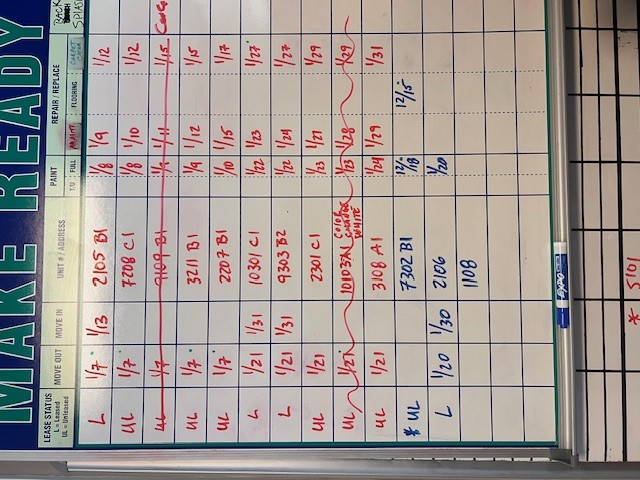 MAKE READY
LEASE STATUS
L = Leased
UL = Unleased
MOVE OUT
MOVE IN
UNIT # / ADDRESS
PAINT
T/U
FULL
REPAIR / REPLACE
MAINT
FLOORING
BACK
SPLAS
L 1/7 1/13 2105 B1 1/8 1/9 1/12
UL 1/7 7208 C1 1/8 1/10 1/12
UL 1/7 9109 B1 1/9 1/11 1/15 Cong
UL 1/7 3211 B1 1/9 1/12 1/15
UL 1/7 2207 B1 1/10 1/15 1/17
L 1/21 1/31 10301 C1 1/22 1/23 1/27
L 1/21 1/31 9303 B2 1/22 1/24 1/27
UL 1/21 2301 C1 1/23 1/27 1/29
UL 1/21 10103 A1 COLOR CHANGE WHITE 1/23 1/28 1/29
UL 1/21 3108 A1 1/24 1/29 1/31
* UL 7302 B1 12/18 12/15
L 1/20 1/30 2106 1/20
1108
EXPO
* 5101